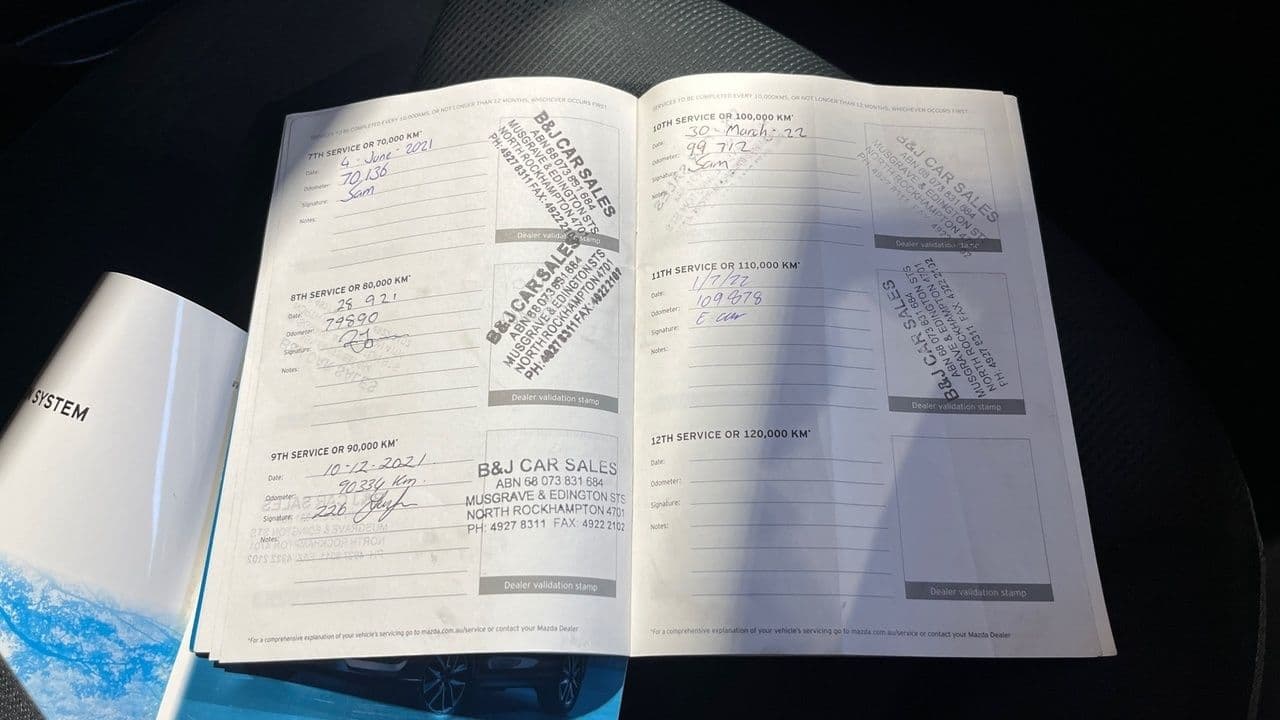 SYSTEM
SERVICES TO BE COMPLETED EVERY 10,000KMS, OR NOT LONGER THAN 12 MONTHS, WHICHEVER OCCURS FIRST
7TH SERVICE OR 70,000 KM*
Date: 4 - June - 2021
Odometer: 70,136
Signature: Sam
Notes:
B&J CAR SALES
ABN 68 073 831 684
MUSGRAVE & EDINGTON STS
NORTH ROCKHAMPTON 4701
PH: 4927 8311 FAX: 4922 2102
Dealer validation stamp
8TH SERVICE OR 80,000 KM*
Date: 28 9 21
Odometer: 79890
Signature:
Notes:
B&J CAR SALES
ABN 68 073 831 684
MUSGRAVE & EDINGTON STS
NORTH ROCKHAMPTON 4701
PH: 4927 8311 FAX: 4922 2102
Dealer validation stamp
9TH SERVICE OR 90,000 KM*
Date: 10-12-2021
Odometer: 90334 Km.
Signature: 226
Notes:
B&J CAR SALES
ABN 68 073 831 684
MUSGRAVE & EDINGTON STS
NORTH ROCKHAMPTON 4701
PH: 4927 8311 FAX: 4922 2102
Dealer validation stamp
*For a comprehensive explanation of your vehicle's servicing go to mazda.com.au/service or contact your Mazda Dealer
SERVICES TO BE COMPLETED EVERY 10,000KMS, OR NOT LONGER THAN 12 MONTHS, WHICHEVER OCCURS FIRST
10TH SERVICE OR 100,000 KM*
Date: 30 - March - 22
Odometer: 99 712
Signature: Sam
Notes:
B&J CAR SALES
ABN 68 073 831 684
MUSGRAVE & EDINGTON STS
NORTH ROCKHAMPTON 4701
Dealer validation stamp
11TH SERVICE OR 110,000 KM*
Date: 1/7/22
Odometer: 109878
Signature: E
Notes:
B&J CAR SALES
ABN 68 073 831 684
MUSGRAVE & EDINGTON STS
NORTH ROCKHAMPTON 4701
PH: 4927 8311 FAX: 4922 2102
Dealer validation stamp
12TH SERVICE OR 120,000 KM*
Date:
Odometer:
Signature:
Notes:
Dealer validation stamp
*For a comprehensive explanation of your vehicle's servicing go to mazda.com.au/service or contact your Mazda Dealer